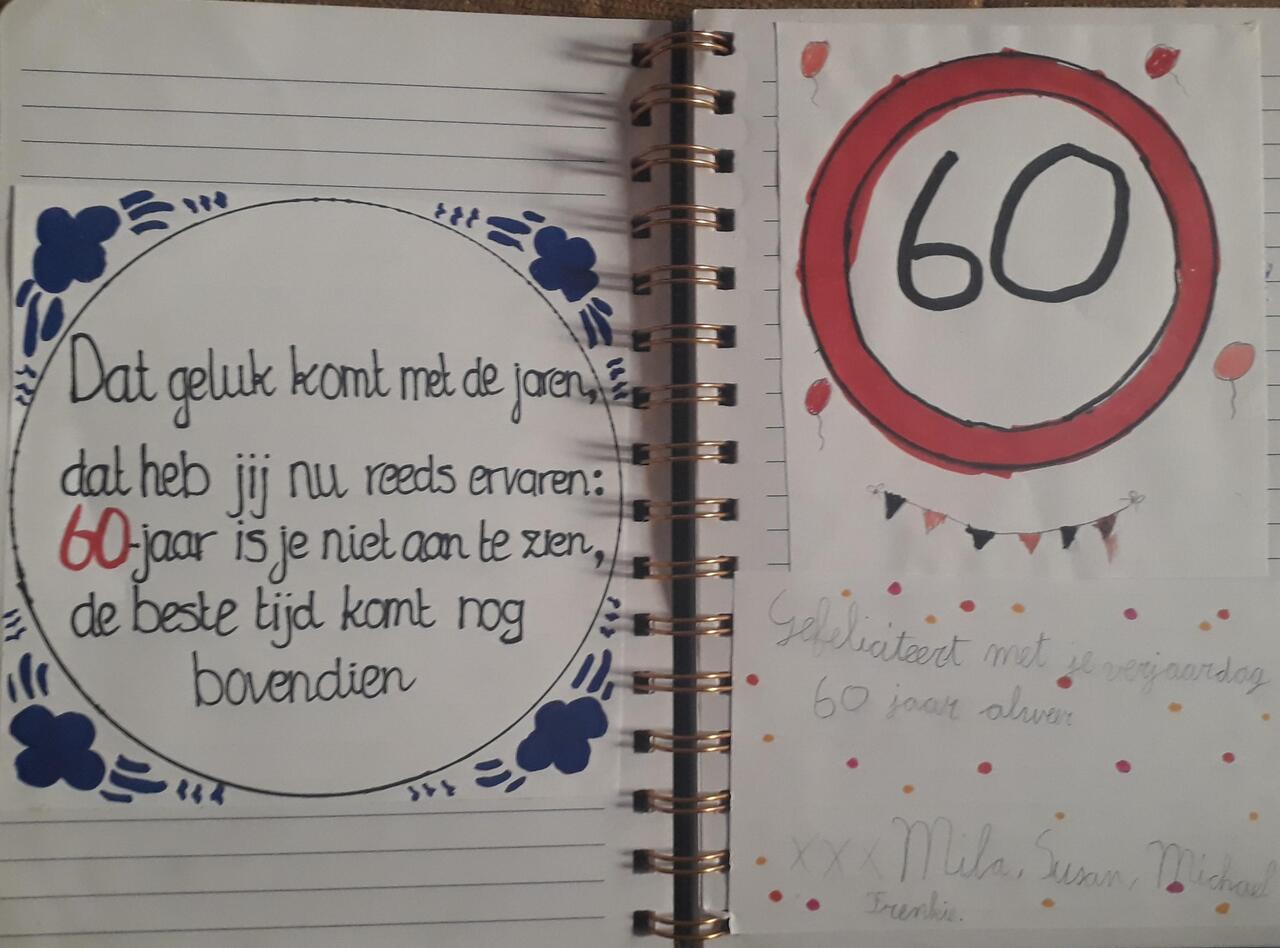 Dat geluk komt met de jaren,
dat heb jij nu reeds ervaren:
60-jaar is je niet aan te zien,
de beste tijd komt nog
bovendien
60
Gefeliciteert met je verjaardag
60 jaar alweer
xxx Mila, Susan, Michael
Frenkie.